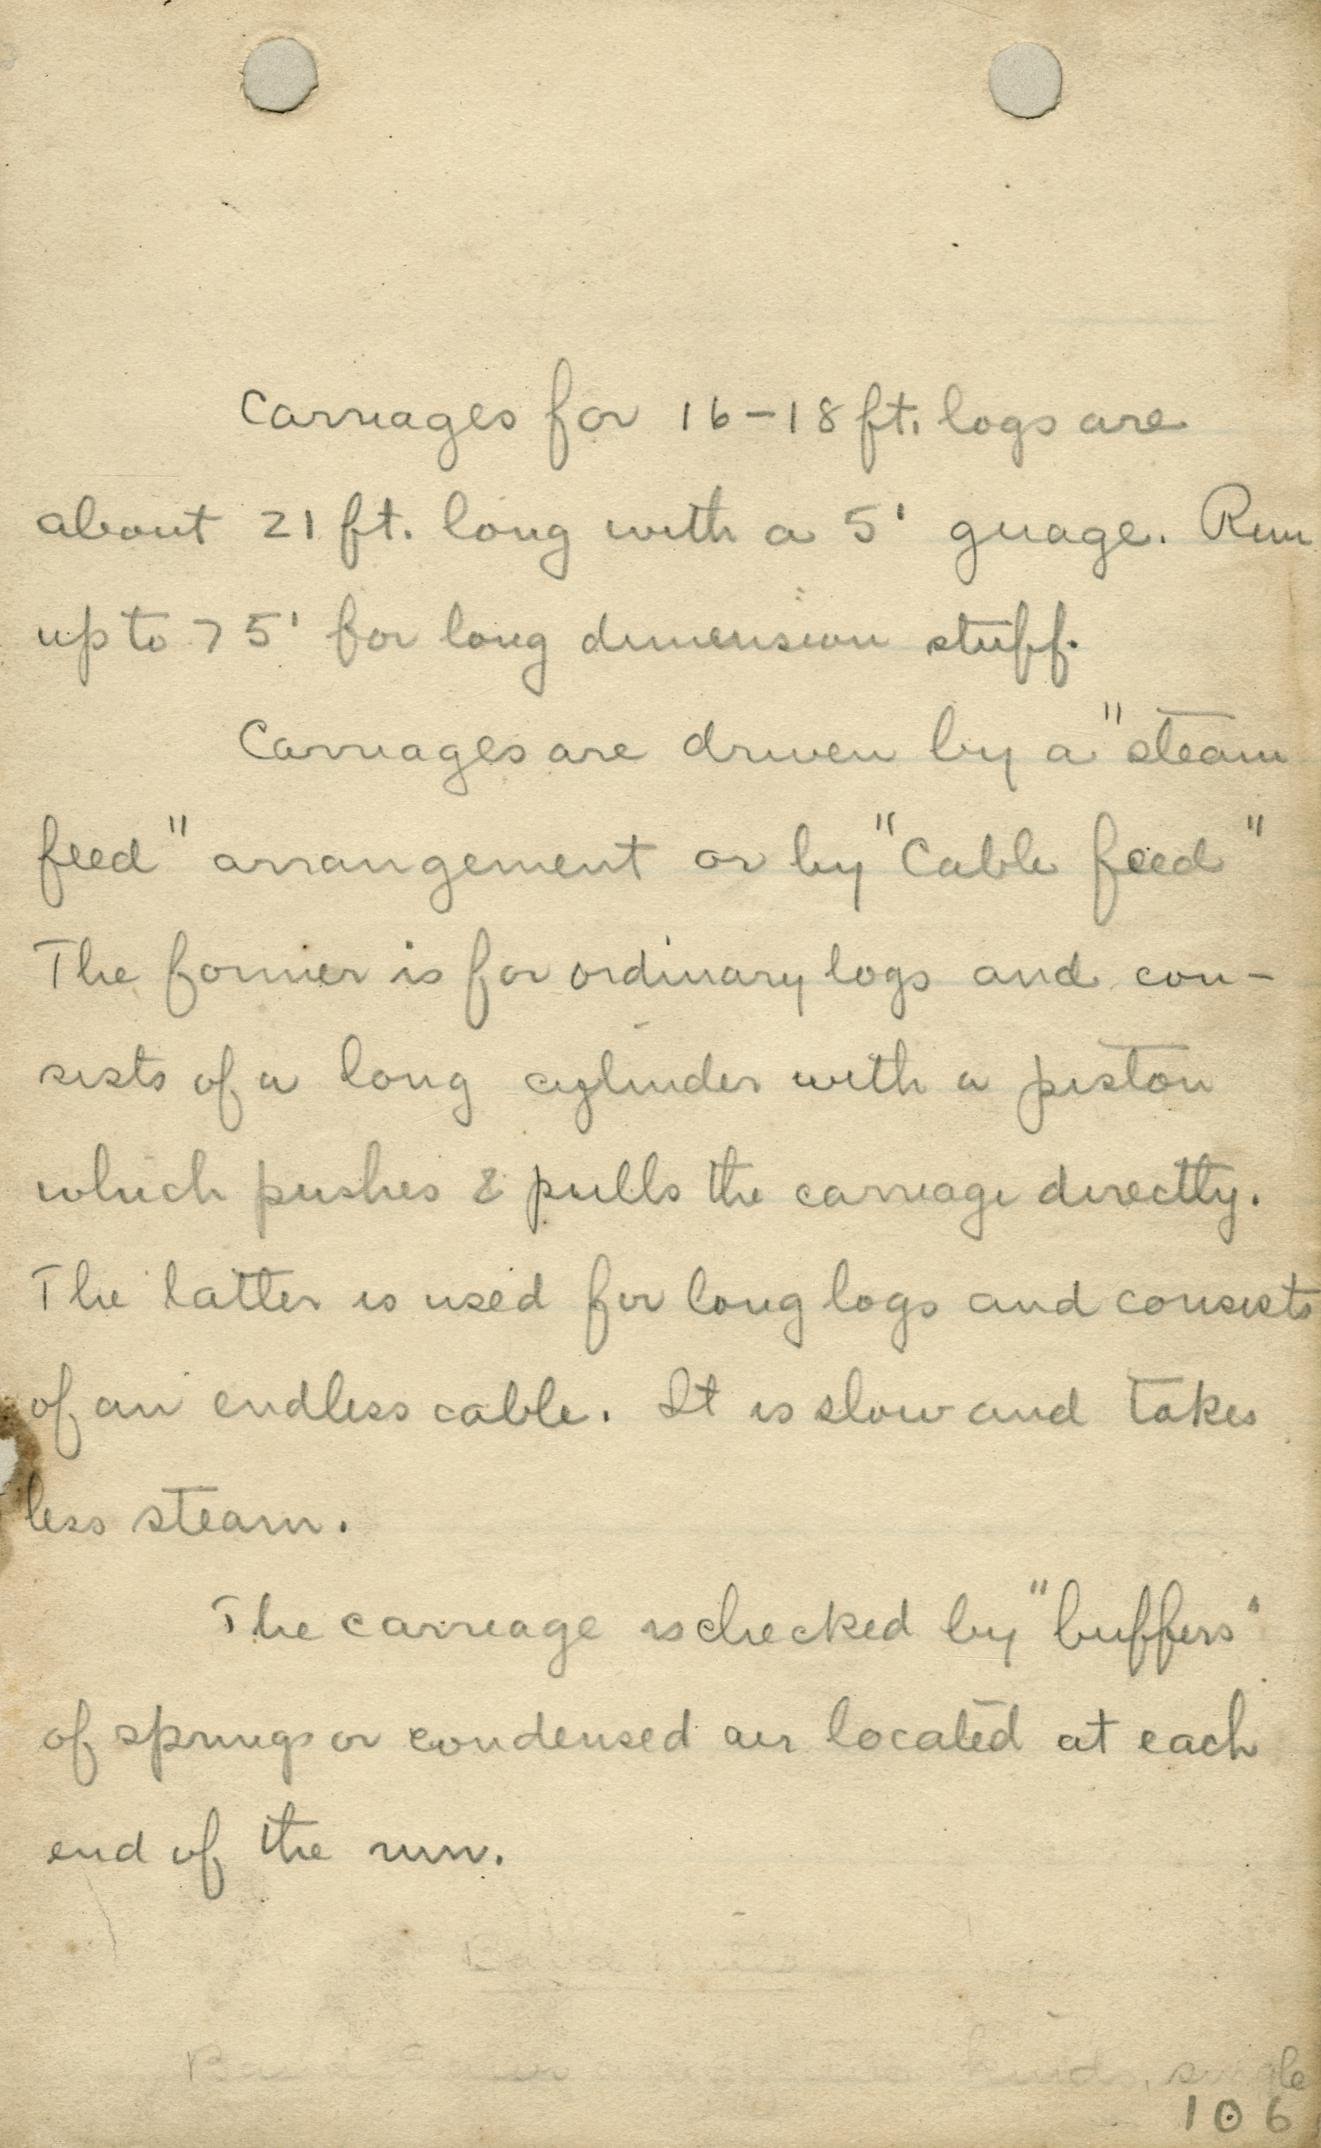 Carriages for 16-18 ft. logs are
about 21 ft. long with a 5' guage. Run
up to 75' for long dimension stuff.
Carriages are driven by a "steam
feed" arrangement or by "Cable feed"
The former is for ordinary logs and con-
sists of a long cylinder with a piston
which pushes & pulls the carriage directly.
The latter is used for long logs and consists
of an endless cable. It is slow and takes
less steam.
The carriage is checked by "buffers"
of springs or condensed air located at each
end of the run.
Band
Band kinds, single
106